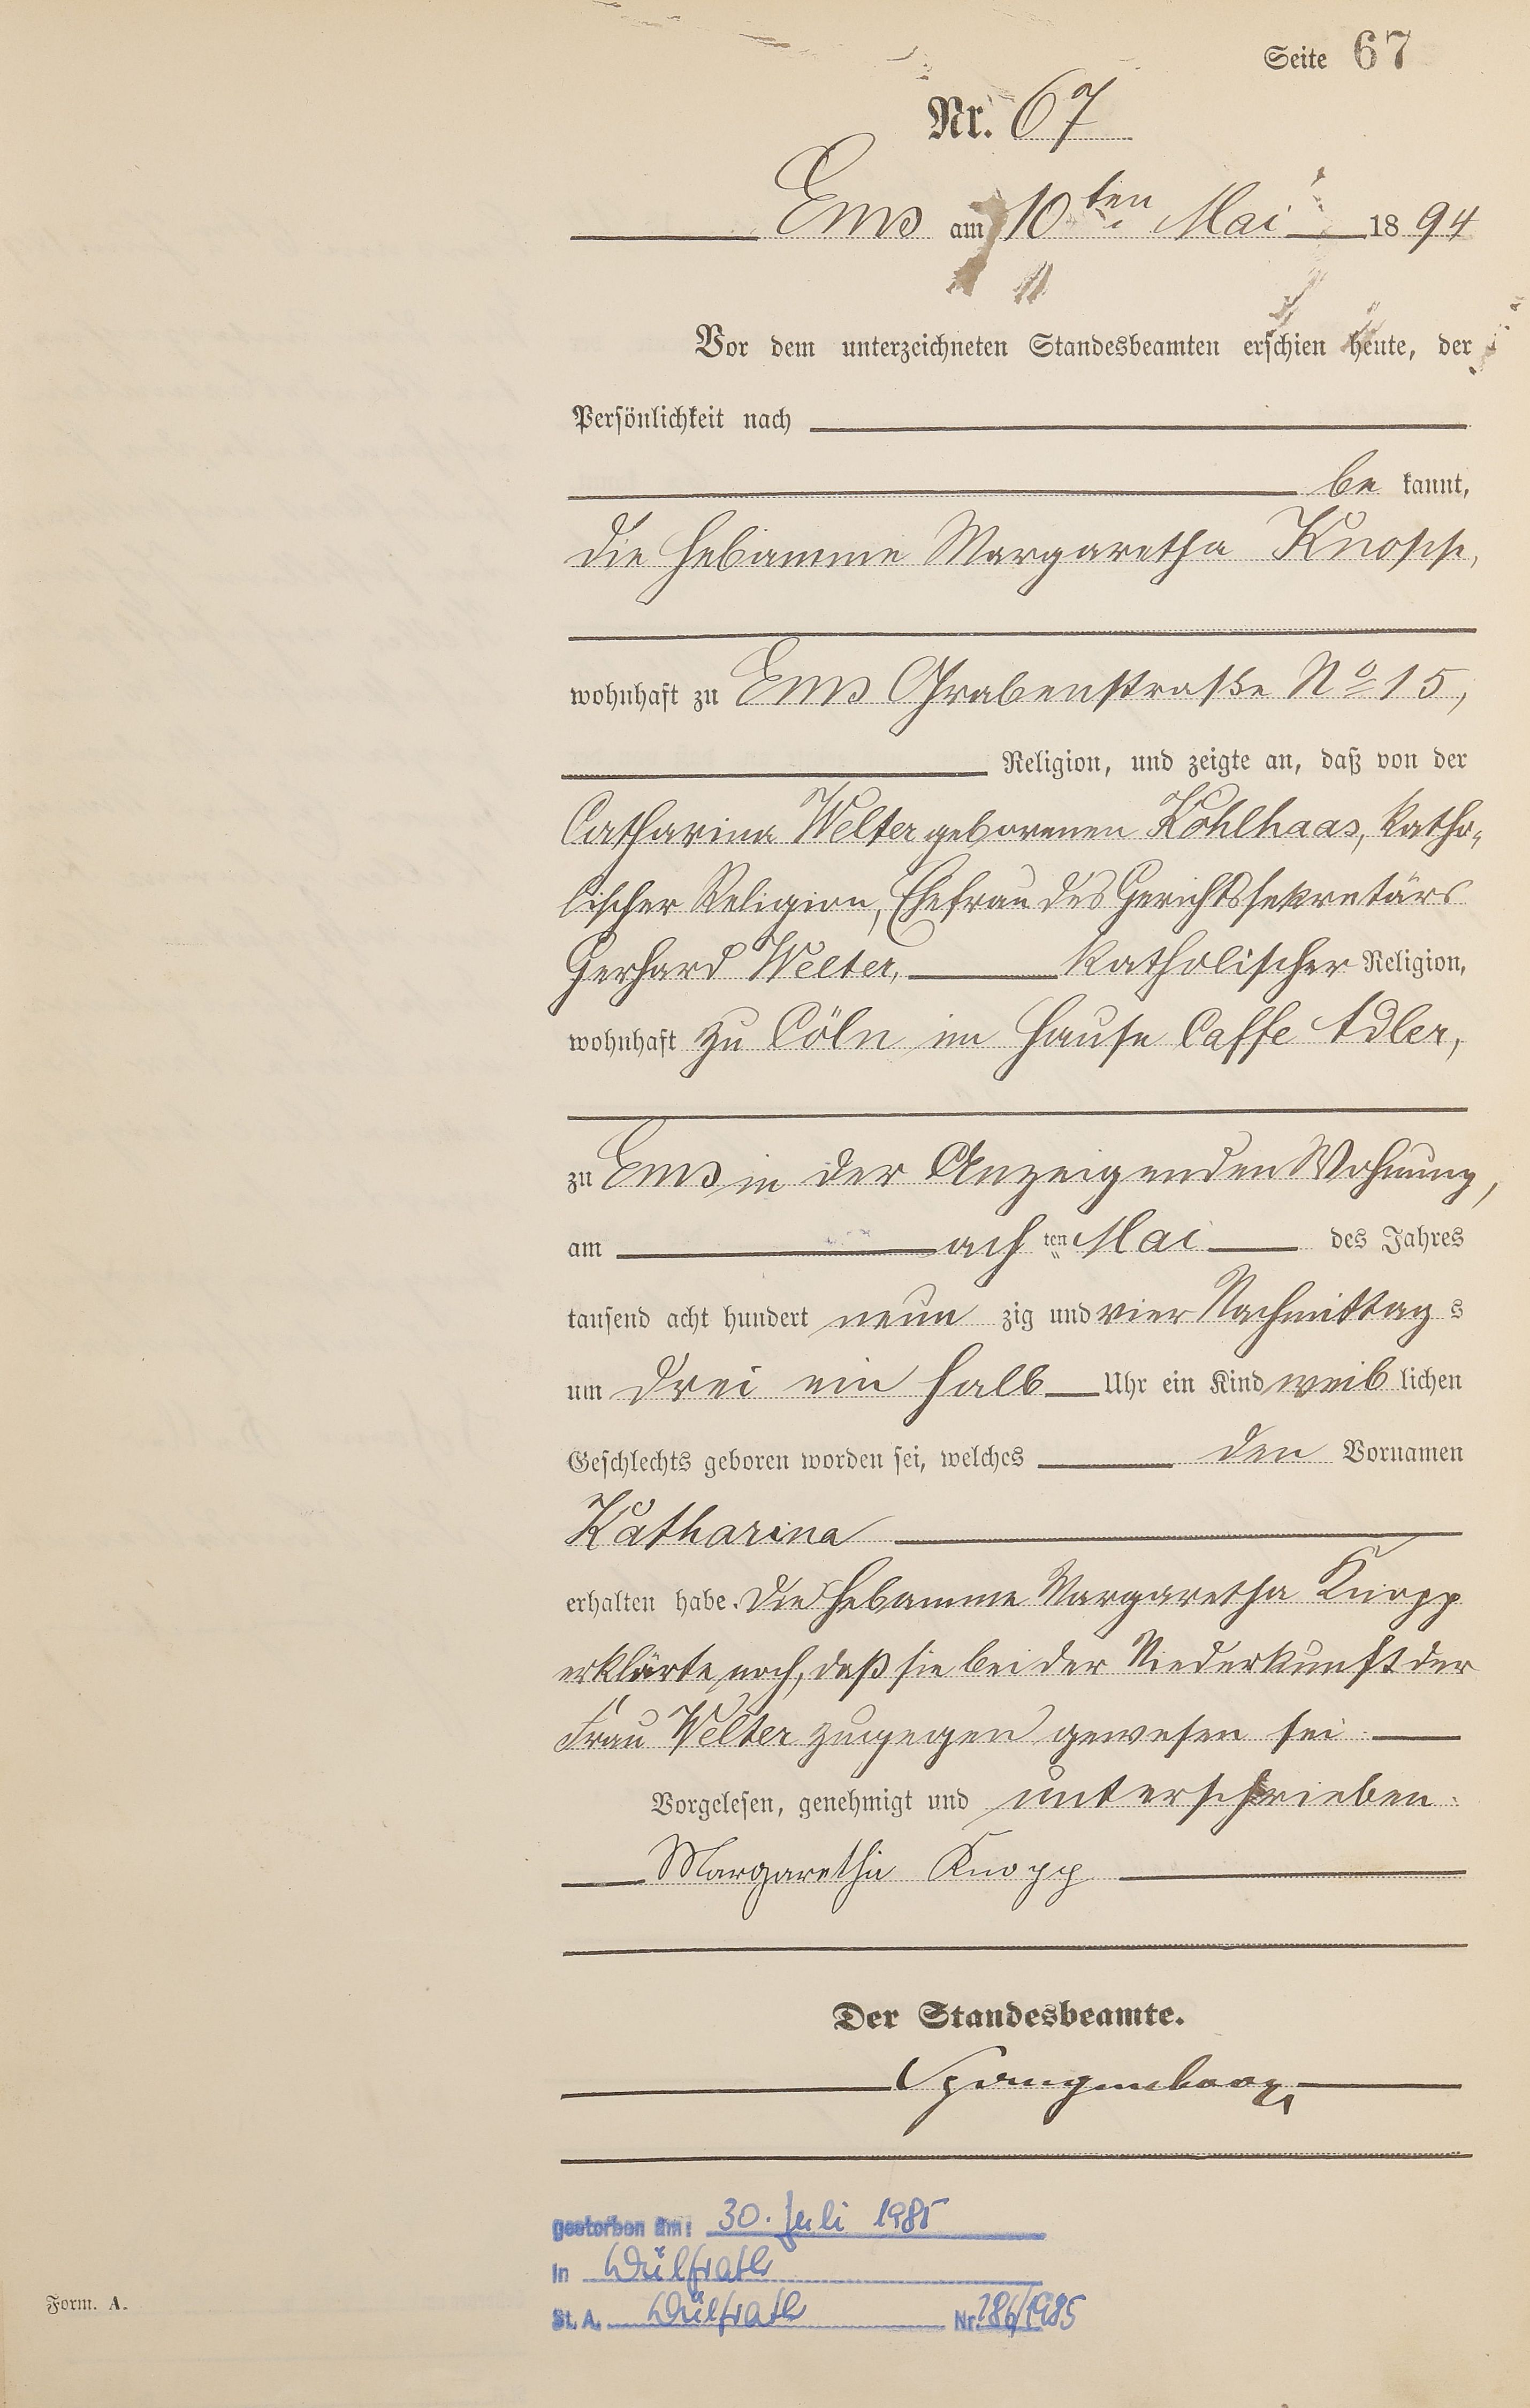 Seite 67
Nr. 67
Ems am 10ten Mai 1894
Vor dem unterzeichneten Standesbeamten erschien heute, der
Persönlichkeit nach
be kannt,
die Hebamme Margaretha Knopp,
wohnhaft zu Ems Grabenstraße No 15,
Religion, und zeigte an, daß von der
Catharina Welter geborenen Kohlhaas, katho-
lischer Religion, Ehefrau des Gerichtssekretärs
Gerhard Welter, katholischer Religion,
wohnhaft zu Cöln im Hause Caffe Adler,
zu Ems in der Anzeigenden Wohnung,
am ach ten Mai des Jahres
tausend acht hundert neun zig und vier Nachmittag s
um drei ein halb Uhr ein Kind weib lichen
Geschlechts geboren worden sei, welches den Vornamen
Katharina
erhalten habe. Die Hebamme Margaretha Knopp
erklärte noch, daß sie bei der Niederkunft der
Frau Welter zugegen gewesen sei.
Vorgelesen, genehmigt und unterschrieben.
Margaretha Knopp
Der Standesbeamte.
gestorben am: 30. Juli 1985
in Wülfrath
St. A. Wülfrath Nr. 186/1985
Form. A.